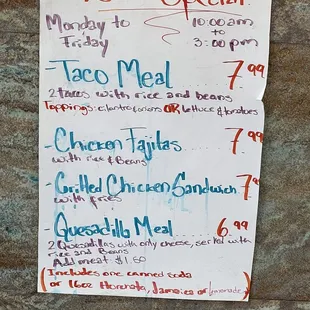 Special
Monday to 10:00am
to
Friday 3:00pm
-Taco Meal ..... 7.99
2 tacos with rice and beans
Toppings: cilantro & onions OR lettuce & tomatoes
-Chicken Fajitas ..... 7.99
with rice & Beans
-Grilled Chicken Sandwich 7.99
with fries
-Quesadilla Meal ..... 6.99
2 Quesadillas with only cheese, served with
rice and Beans
Add meat $1.50
(Includes one canned soda
or 16oz Horchata, Jamaica or lemonade)